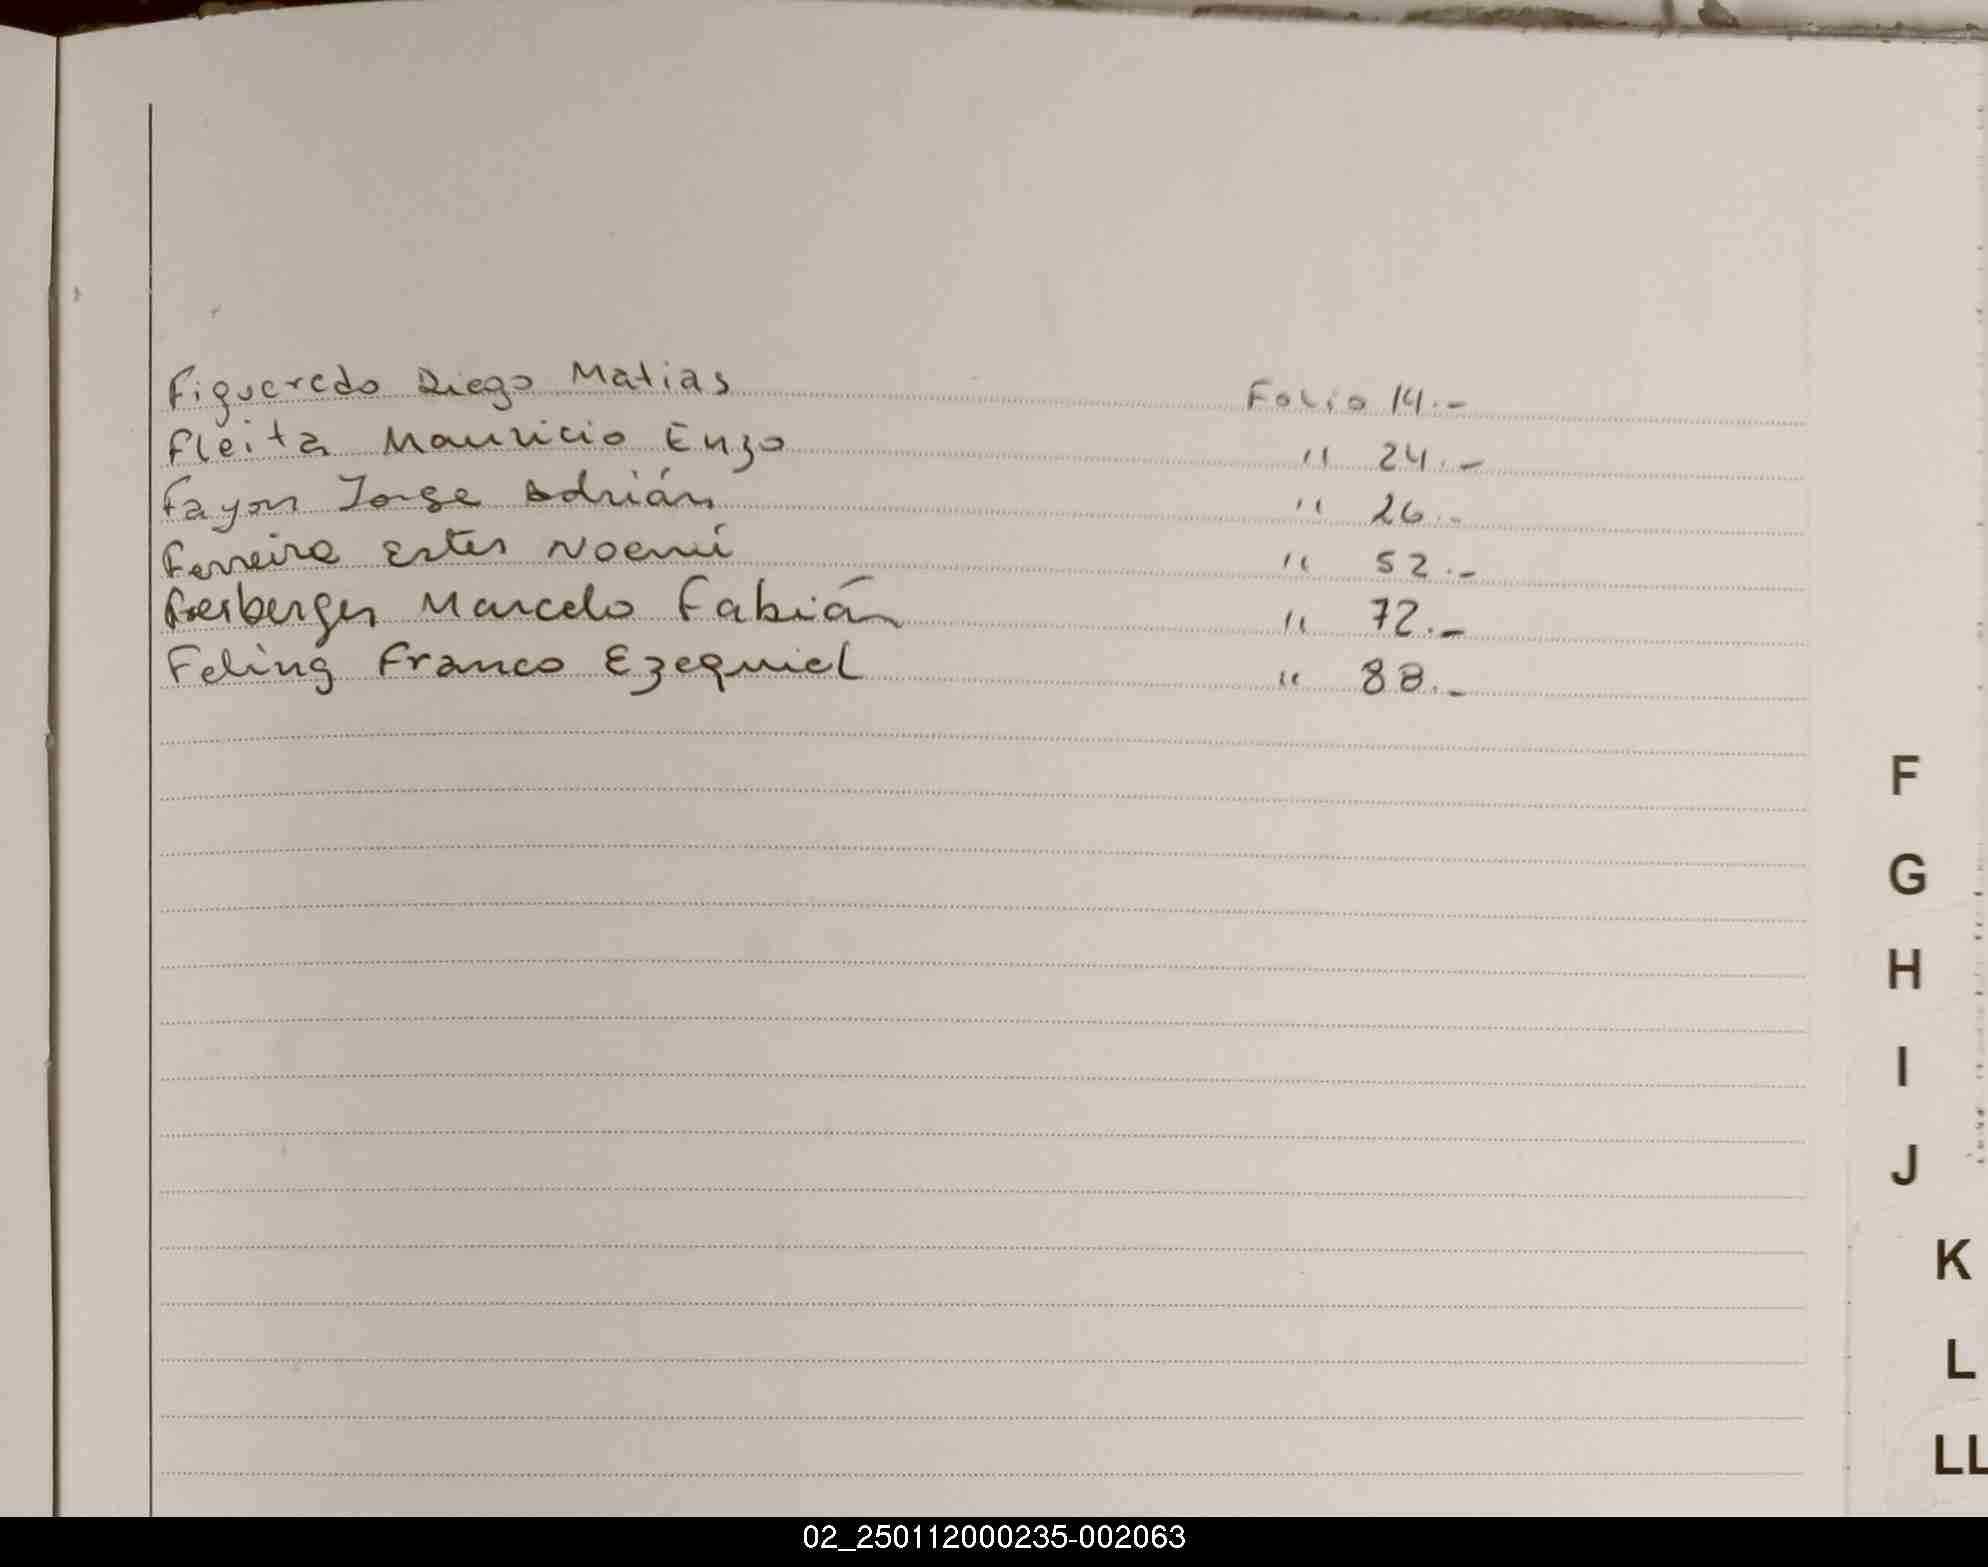 Figueredo Diego Matias Folio 14.-
Fleita Mauricio Enzo " 24.-
Fayon Jorge Adrián " 26.-
Ferreira Ester Noemí " 52.-
Marcelo Fabián " 72.-
Feling Franco Ezequiel " 88.-
F
G
H
I
J
K
L
LL
02_250112000235-002063